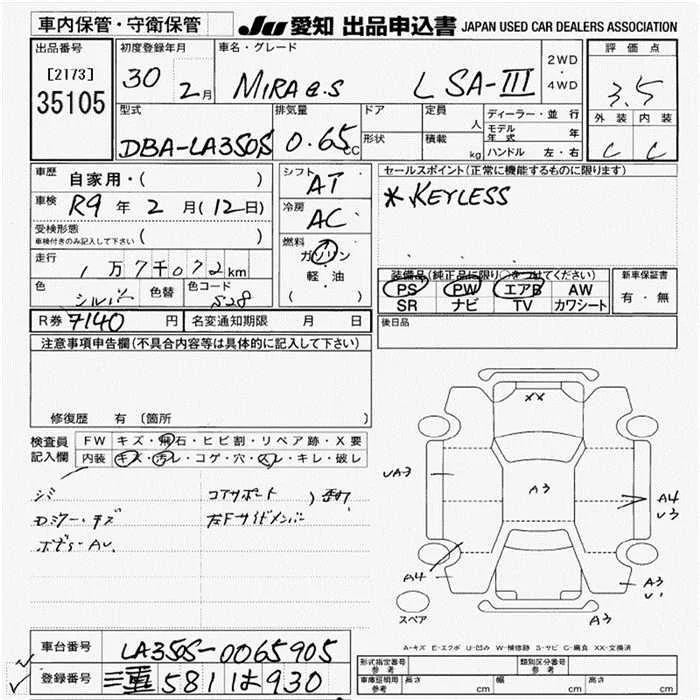 車内保管・守衛保管 JU 愛知 出品申込書 JAPAN USED CAR DEALERS ASSOCIATION
出品番号 [2173] 35105
初度登録年月 30 2月
車名・グレード MIRA e.S L SA-III
2WD・4WD
評価点 3.5
外装 内装
C C
型式 DBA-LA350S
排気量 0.65cc
ドア
形状
定員 人
積載 kg
ディーラー・並行
モデル年式 年
ハンドル 左・右
車歴 自家用・( )
車検 R9年2月(12日)
受検形態 ( )
車検付きのみ記入して下さい
走行 1万7千072km
色 シルバー 色替 色コード S28
シフト AT
冷房 AC
燃料 ガソリン
軽・油
( )
セールスポイント(正常に機能するものに限ります)
*KEYLESS
装備品(純正品に限り○をつけてください)
PS PW エアB AW
SR ナビ TV カワシート
新車保証書
有・無
R券 7140円 名変通知期限 月 日
後日品
注意事項申告欄(不具合内容等は具体的に記入して下さい)
修復歴 有 〔箇所 〕
検査員記入欄
FW キズ・飛石・ヒビ割・リペア跡・X要
内装 キズ・汚レ・コゲ・穴・スレ・キレ・破レ
シミ
Dミラー・キズ
ボディー・AU
コアサポート
左Fサイドメンバー
XX
UA3
A3
A4
U3
A4
A3
U1
A3
スペア
A-キズ E-エクボ U-凹み W-補修跡 S-サビ C-腐食 XX-交換済
車台番号 LA350S-0065905
登録番号 三重 581 は 930
形式指定番号 参考
類別区分番号 参考
車庫証明用 参考 長さ cm 幅 cm 高さ cm